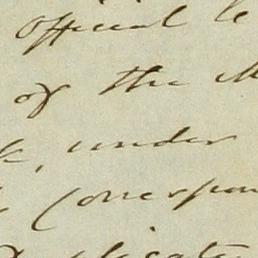 official le
of the M
, under
Correspon
plicate